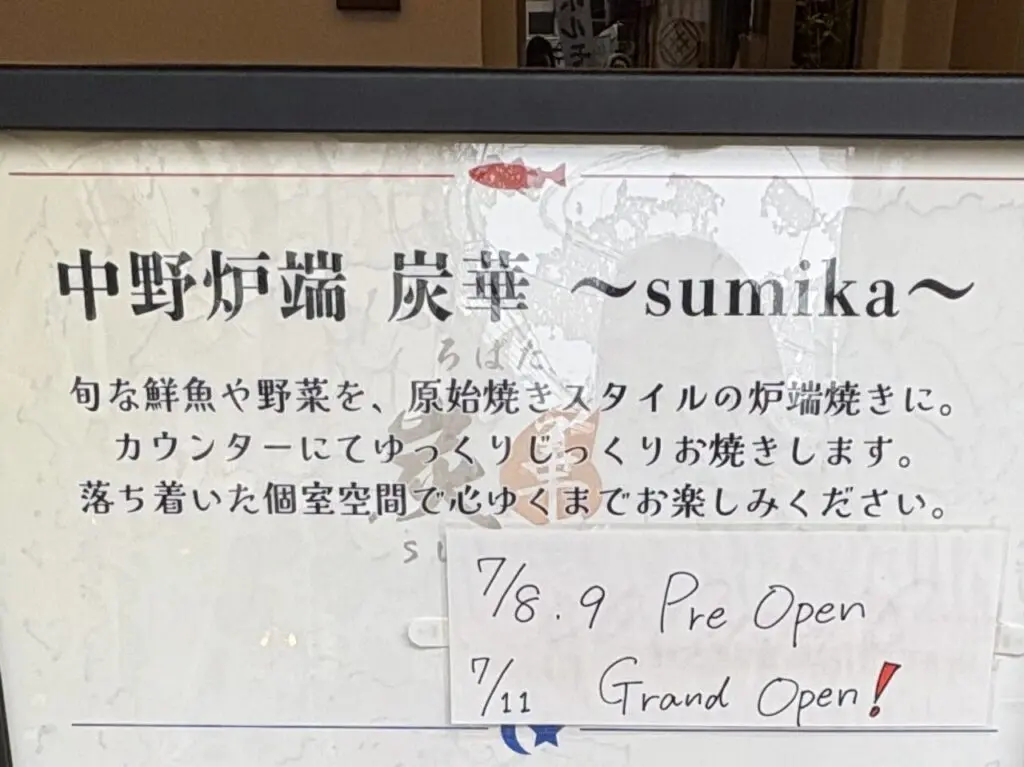 中野炉端 炭華 〜sumika〜
ろばた
旬な鮮魚や野菜を、原始焼きスタイルの炉端焼きに。
カウンターにてゆっくりじっくりお焼きします。
落ち着いた個室空間で心ゆくまでお楽しみください。
7/8.9 Pre Open
7/11 Grand Open!